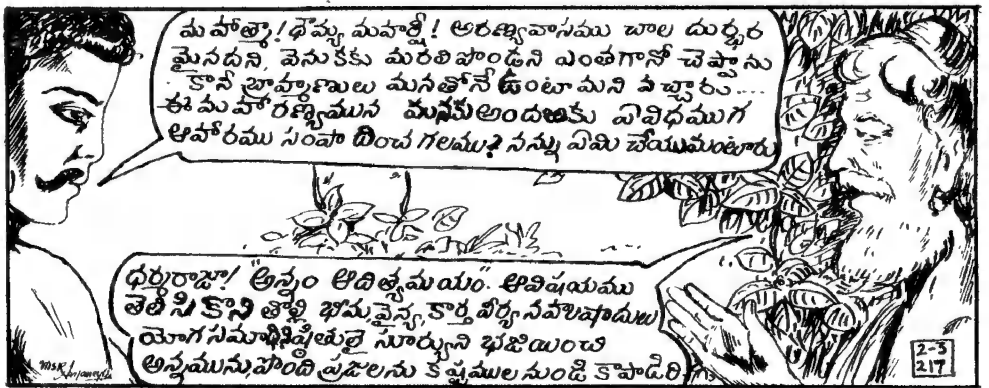 మహాత్మా! ధౌమ్య మహర్షీ! అరణ్యవాసము చాల దుర్భర
మైనదని, వెనుకకు మరలి పొండని ఎంతగానో చెప్పాను
కానీ బ్రాహ్మణులు మనతోనే ఉంటామని వచ్చారు....
ఈ మహారణ్యమున మనకు అందఱికు ఏవిధముగ
ఆహారము సంపాదించ గలము? నన్ను ఏమి చేయుమంటారు
ధర్మరాజా! "అన్నం ఆదిత్యమయం". ఆవిషయము
తెలిసికొని తొల్లి భీమవైన్య, కార్తవీర్య నహుషాదులు
యోగసమాధినిష్ఠితులై సూర్యుని భజియించి
అన్నమును పొంది ప్రజలను కష్టముల నుండి కాపాడిరి
MSR
2-3
217